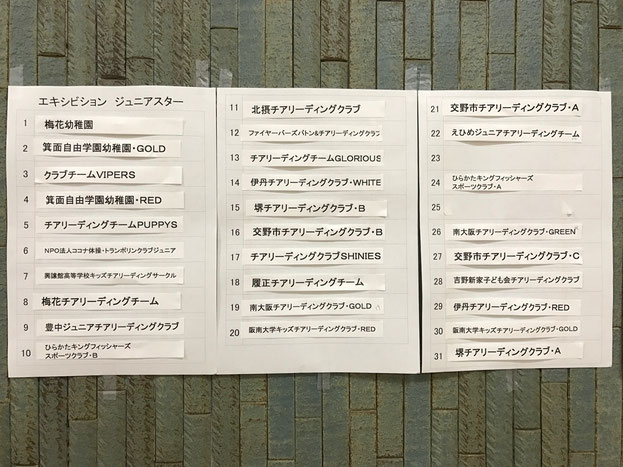 エキシビション ジュニアスター
1 梅花幼稚園
2 箕面自由学園幼稚園・GOLD
3 クラブチームVIPERS
4 箕面自由学園幼稚園・RED
5 チアリーディングチームPUPPYS
6 NPO法人ココナ体操・トランポリンクラブジュニア
7 興譲館高等学校キッズチアリーディングサークル
8 梅花チアリーディングチーム
9 豊中ジュニアチアリーディングクラブ
10 ひらかたキングフィッシャーズ
スポーツクラブ・B
11 北摂チアリーディングクラブ
12 ファイヤーバーズバトン&チアリーディングクラブ
13 チアリーディングチームGLORIOUS
14 伊丹チアリーディングクラブ・WHITE
15 堺チアリーディングクラブ・B
16 交野市チアリーディングクラブ・B
17 チアリーディングクラブSHINIES
18 履正チアリーディングチーム
19 南大阪チアリーディングクラブ・GOLD
20 阪南大学キッズチアリーディングクラブ・RED
21 交野市チアリーディングクラブ・A
22 えひめジュニアチアリーディングチーム
23
24 ひらかたキングフィッシャーズ
スポーツクラブ・A
25
26 南大阪チアリーディングクラブ・GREEN
27 交野市チアリーディングクラブ・C
28 吉野新家子ども会チアリーディングクラブ
29 伊丹チアリーディングクラブ・RED
30 阪南大学キッズチアリーディングクラブ・GOLD
31 堺チアリーディングクラブ・A